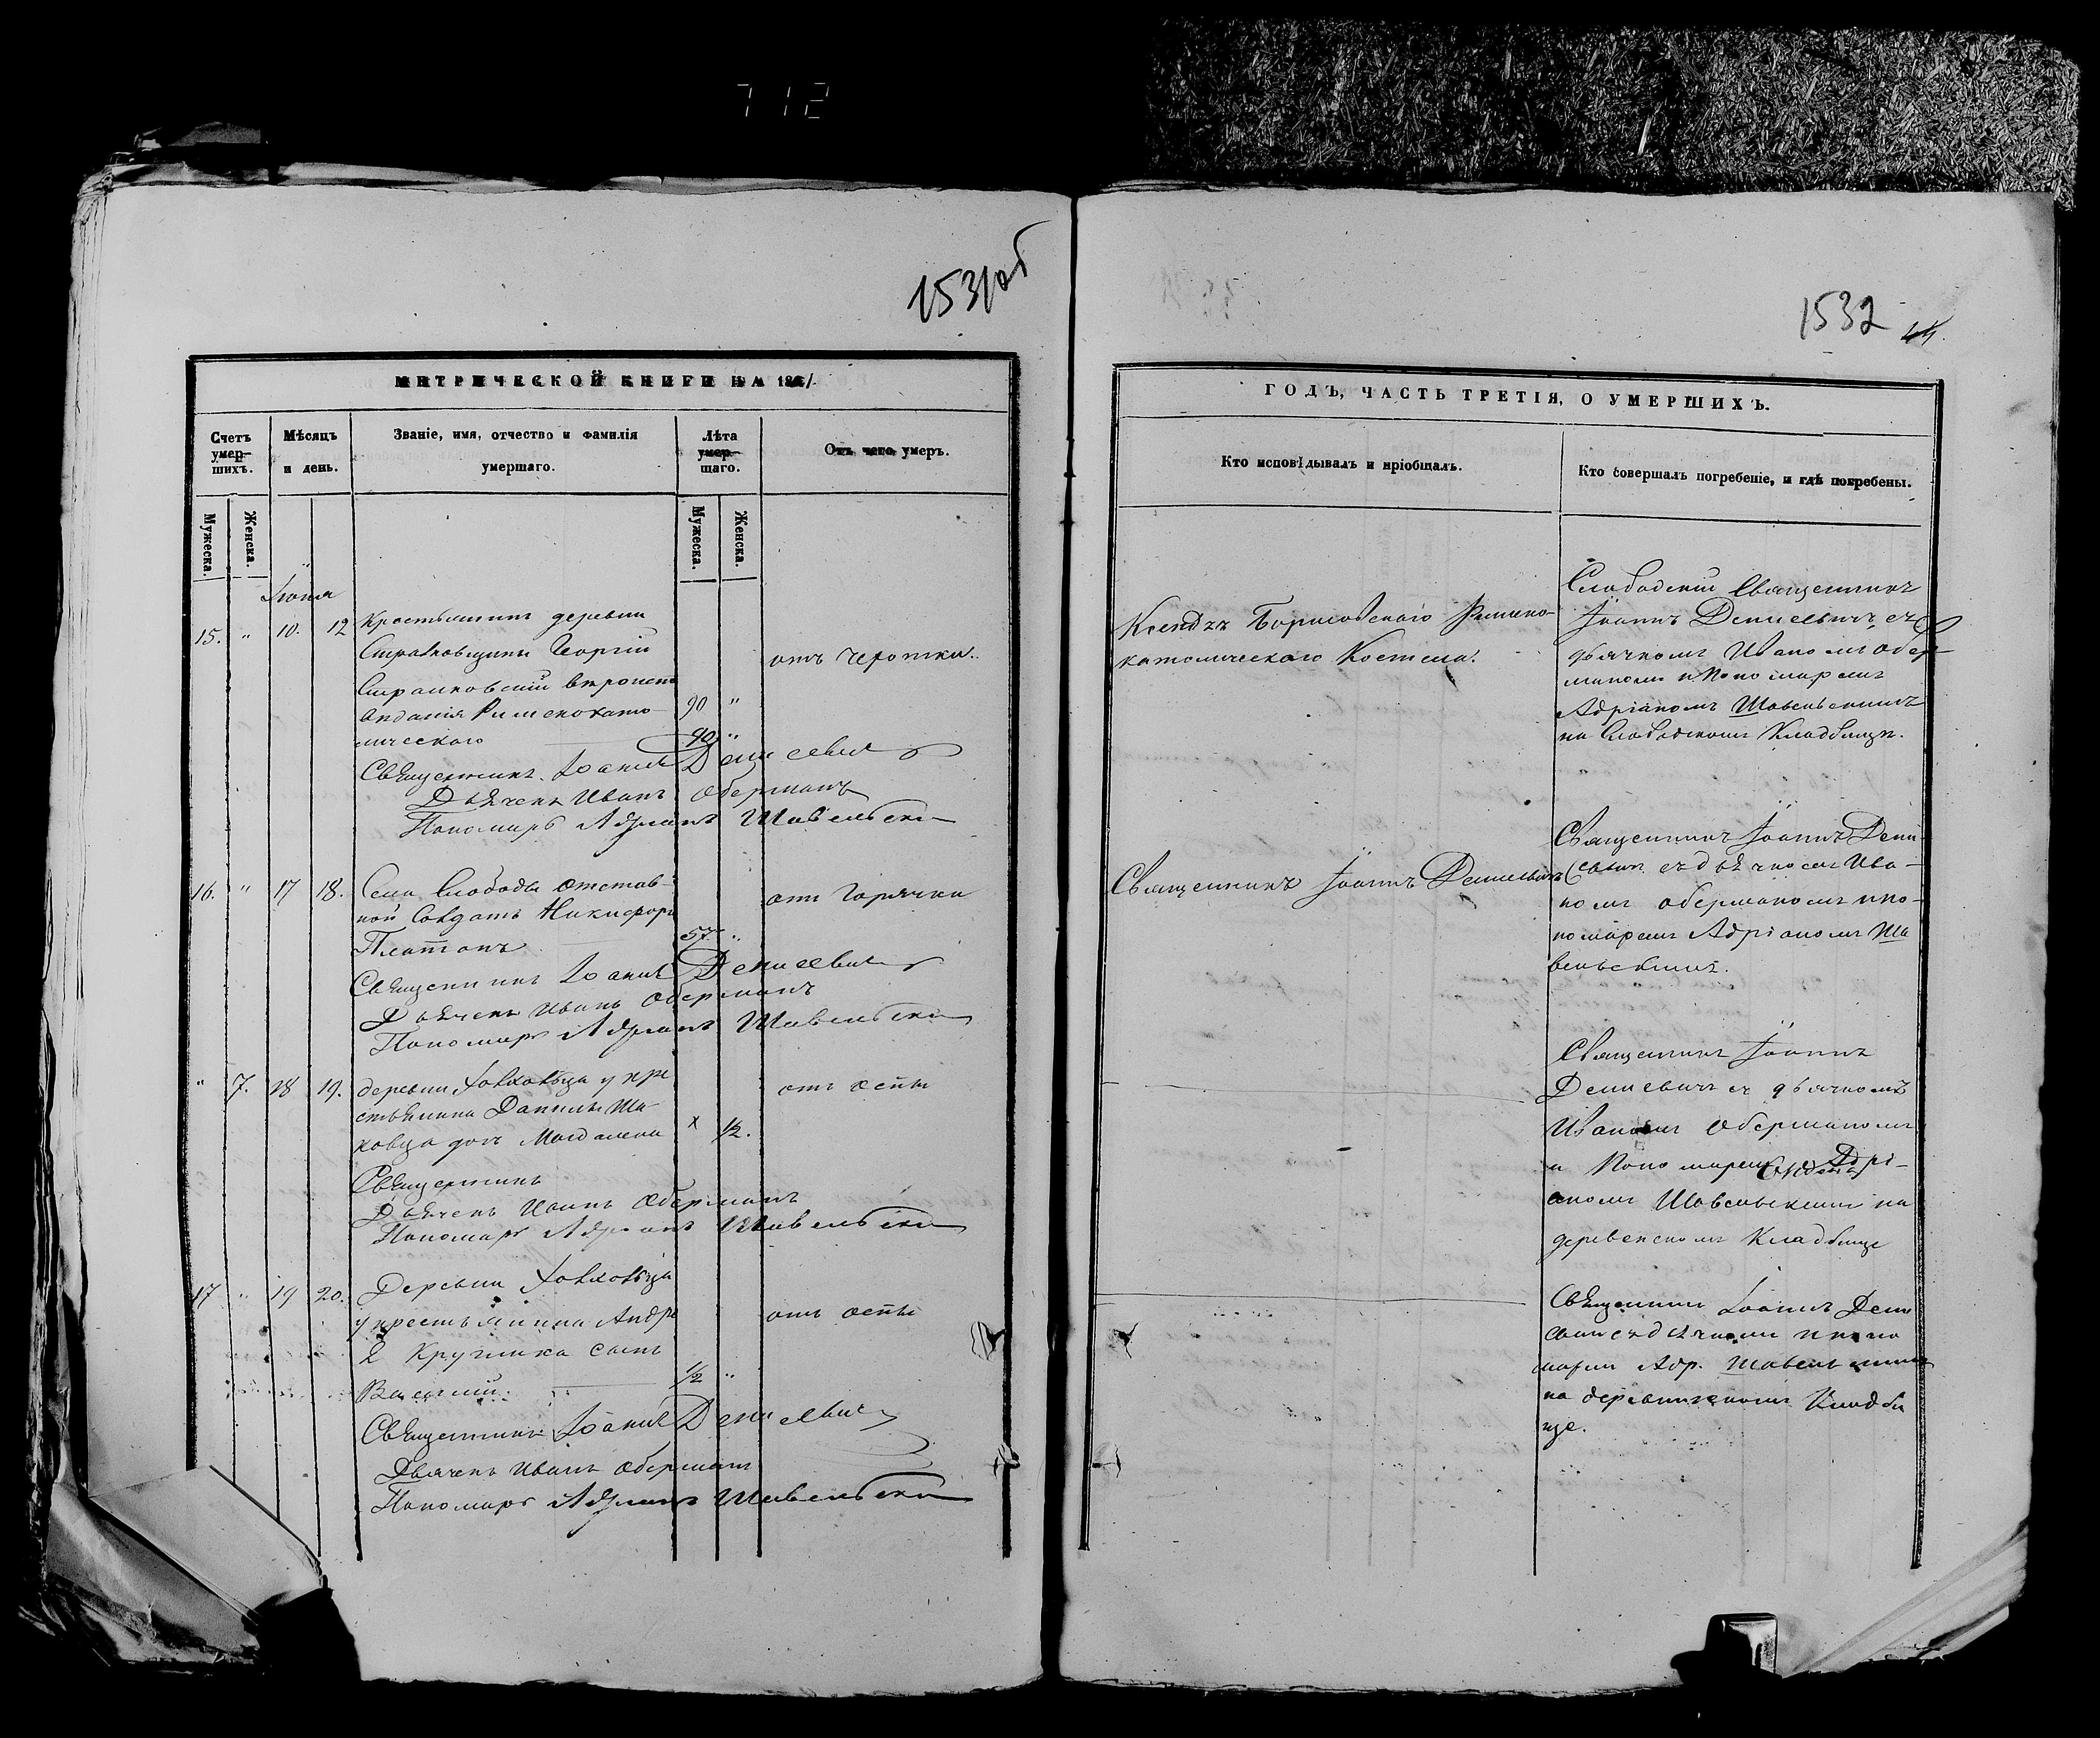 712
1531об
МЕТРИЧЕСКОЙ КНИГИ НА 1861
Счетъ умер-шихъ.
Мѣсяцъ и день.
Званіе, имя, отчество и фамилія умершаго.
Лѣта умер-шаго.
Отъ чего умеръ.
Мужеска.
Женска.
Мужеска.
Женска.
15. " 10. 12
Крестьянинъ деревни
Георгій
90 "
отъ чахотки.
Римскокато-
лическаго
90 "
Священникъ Іоаннъ Денисевичъ
Дьячекъ Иванъ Оберманъ
Пономарь Адріанъ Шавельскій
16. " 17 18.
Села Слободы отстав-
ной Солдатъ Никифоръ
Платонъ
57 "
отъ горячки
Священникъ Іоаннъ Денисевичъ
Дьячекъ Иванъ Оберманъ
Пономарь Адріанъ Шавельскій
" 7. 18 19.
деревни у кре
стьянина Даніила Ша-
ховца дочь Магдалена
х 1/2.
отъ оспы
Священникъ
Дьячекъ Иванъ Оберманъ
Пономарь Адріанъ Шавельскій
17 " 19 20.
Деревни
у крестьянина Андре
я сынъ
Василій.
1/2 "
отъ оспы
Священникъ Іоаннъ Денисевичъ
Дьячекъ Иванъ Оберманъ
Пономарь Адріанъ Шавельскій
1532
44.
ГОДЪ, ЧАСТЬ ТРЕТІЯ, О УМЕРШИХЪ.
Кто исповѣдывалъ и пріобщалъ.
Кто совершалъ погребеніе, и гдѣ погребены.
Ксендзъ Борисовскаго Римско-
католическаго Костела.
Слободскій Священникъ
Іоаннъ Денисевичъ съ
дьячкомъ Иваномъ Обер-
маномъ и Пономаремъ
Адріаномъ Шавельскимъ
на Слободскомъ Кладбищѣ.
Священникъ Іоаннъ Денисевичъ
Священникъ Іоаннъ Дени-
севичъ съ дьячкомъ Ива-
номъ Оберманомъ и по-
номаремъ Адріаномъ Ша
вельскимъ.
Священникъ Іоаннъ
Денисевичъ съ дьячкомъ
Иваномъ Оберманомъ
и Пономаремъ Адрі-
аномъ Шавельскимъ на
деревенскомъ Кладбище
Священникъ Іоаннъ Дени
севичъ съ дьячкомъ и поно
маремъ Адр. Шавельскимъ
на деревенскомъ Кладби
ще.